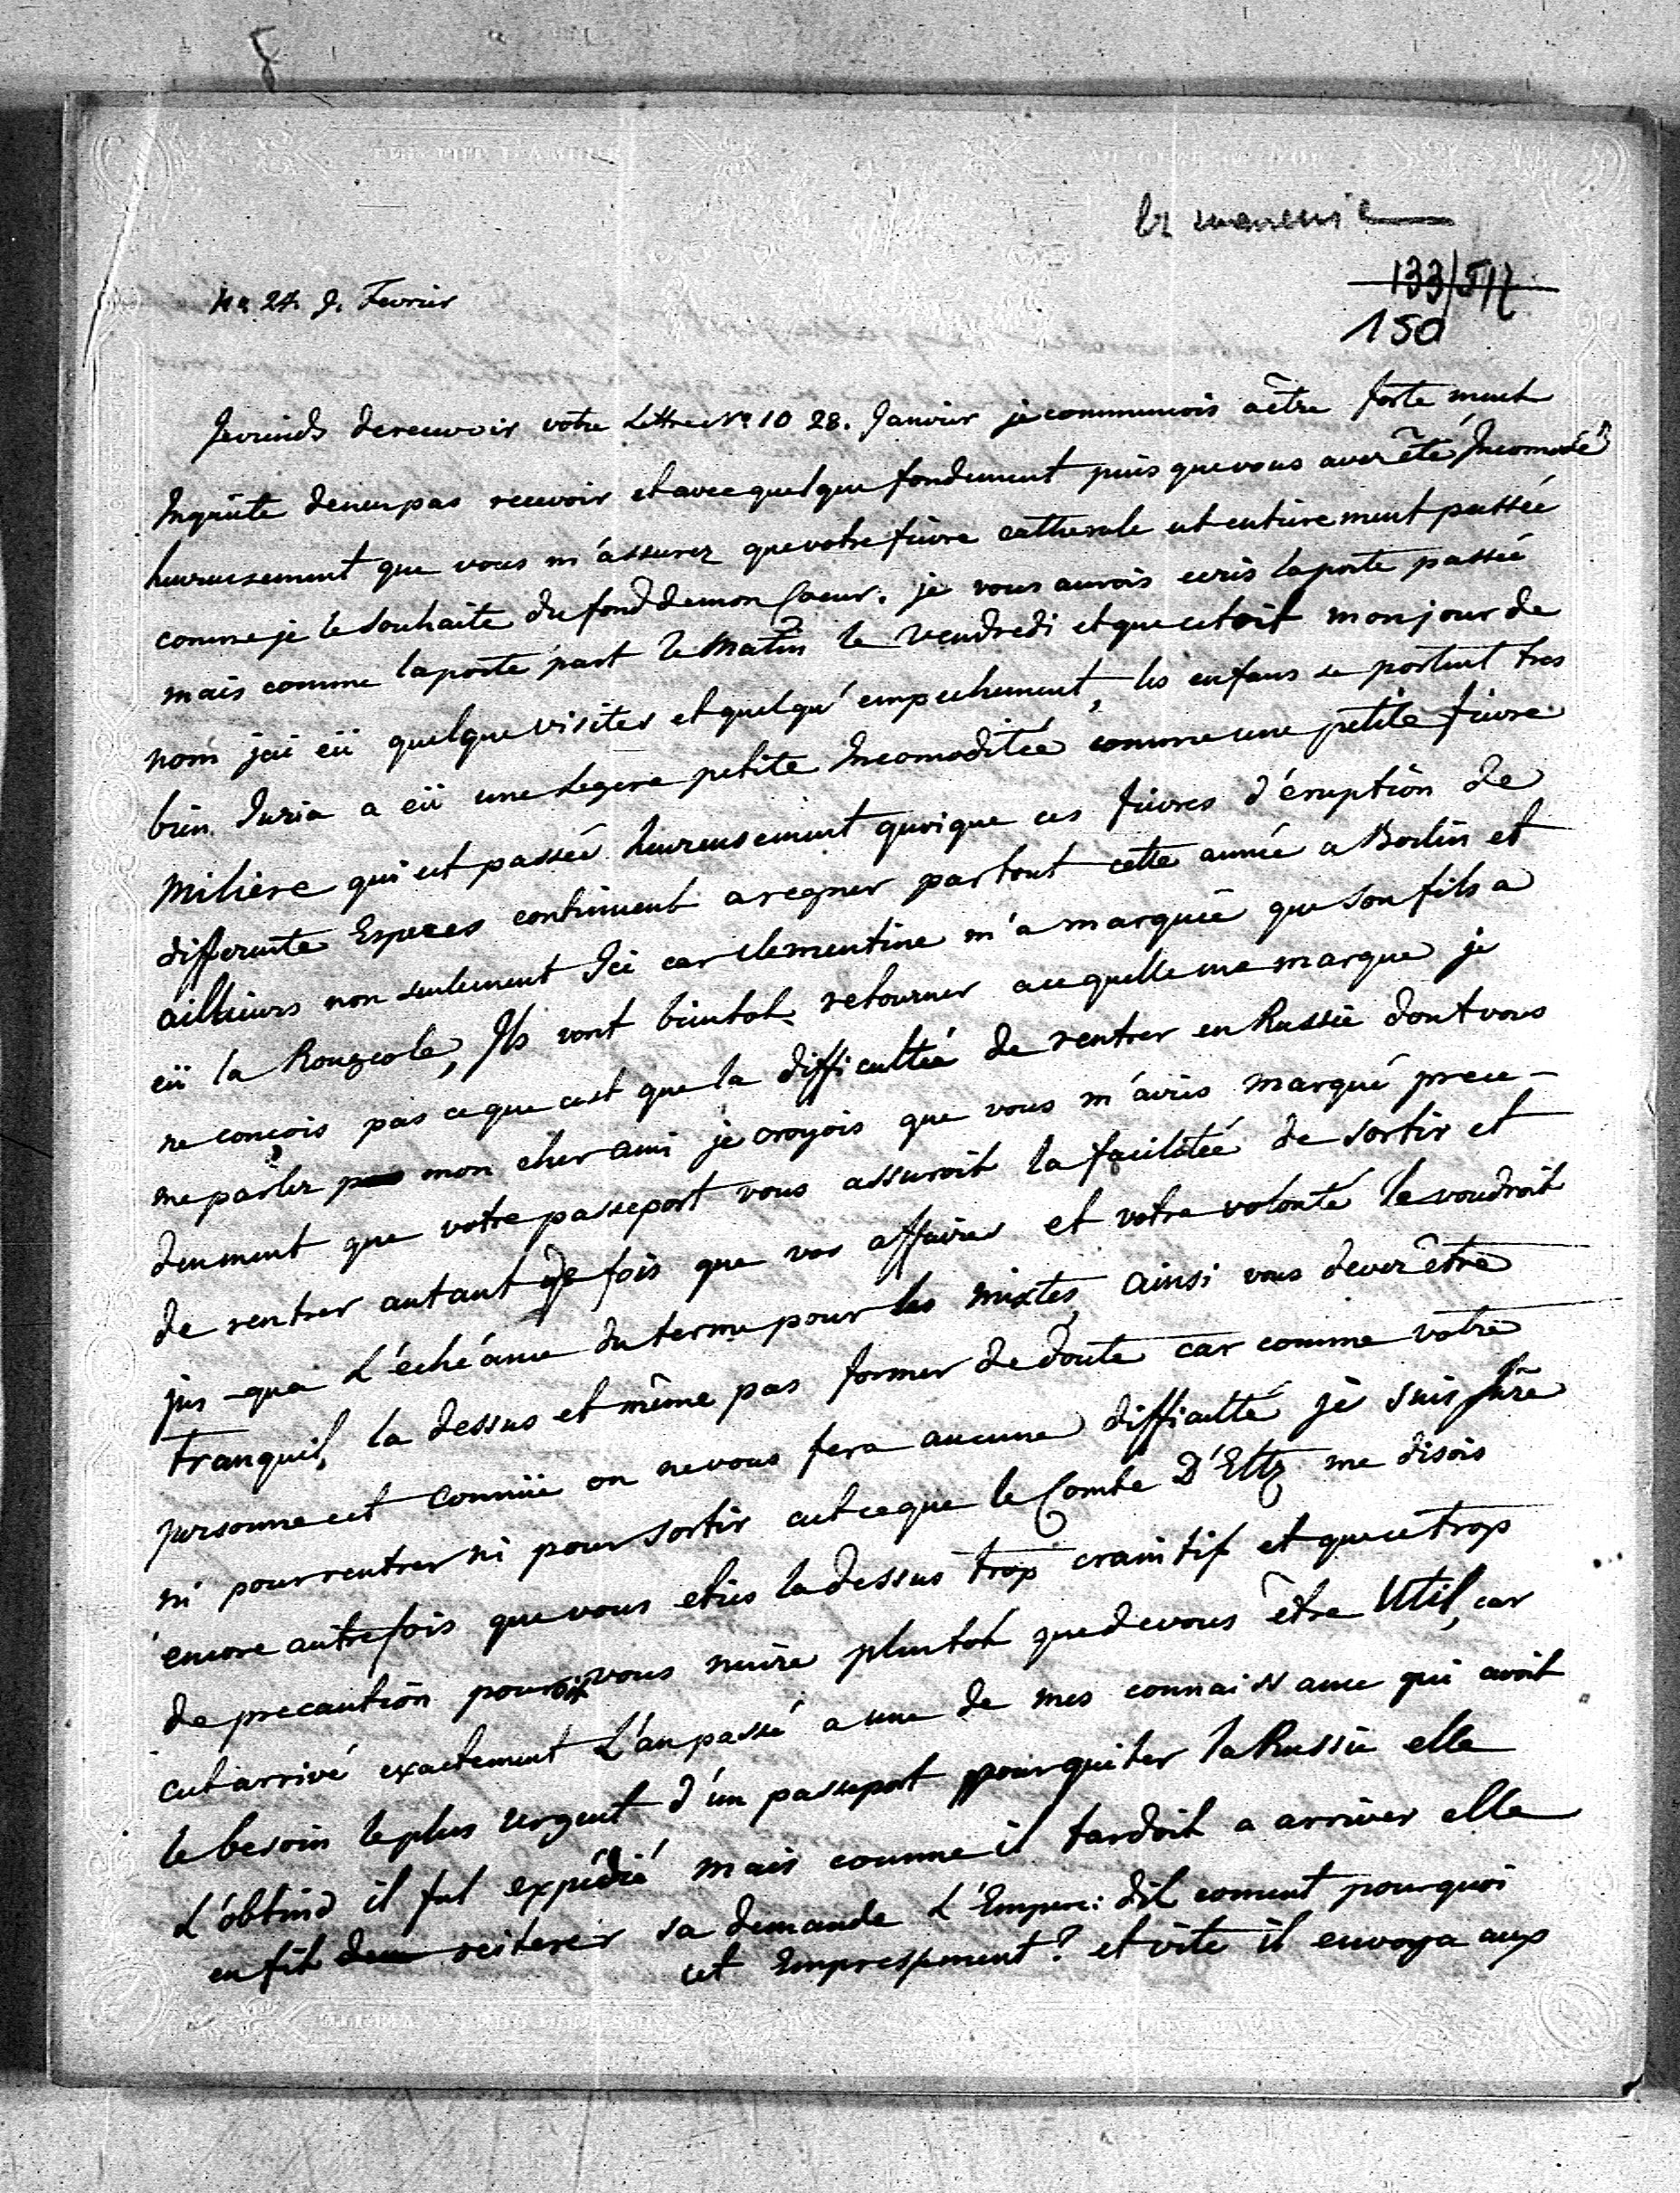 8
133/517
150
No 24. 9. Fevrier
Je viends derecevoir votre Lettre No 10 28. Janvier je commencois aêtre forte ment
Inquiete denen pas recevoir et avec quelque fondement puis que vous avez êtté Incomodé
heureusement que vous m'assurez que votre fievre catherale est entiere ment passée
comme je le souhaite du fond demon Coeur. je vous aurois ecris laposte passée
mais comme laposte part le Matin le Vendredi et que cetoit mon jour de
nom jai eü quelque visites et quelqu'empechement, les enfans se portent tres
bien a eü une Legere petite Incomoditée comme une petite fievre
Miliere qui est passée heureusement quoique ces fievres d'éruption de
differente Especes continuent a regner partout cette année a Berlin et
ailleiurs non seulement Ici car clementine m'a marquée que son fils a
eü la Rougeole, Ils vont bientot retourner acequelle me marque je
ne concois pas ceque cest que la difficultée de rentrer en Russie dont vous
me parlez mon cher ami je croyois que vous m'aviés marqué prece-
denment que votre passeport vous assuroit la facilitée de sortir et
de rentrer autant de fois que vos affaires et votre volonté le voudroit
jus-qua L'echéance du terme pour les mixtes, ainsi vous devez être
tranquil, la dessus et même pas former de doute car comme votre
personne est connüe on ne vous fera aucune difficulté je suis sûre
ni pour rentrer ni pour sortir cest ceque le Comte D'Eltz me disois
encore autrefois que vous etiés la dessus trop craintif et que ce trop
de precaution pouroit vous nuire plustot que de vous être Util, car
cest arrivé exactement L'an passé a une de mes connaissance qui avoit
le besoin le plus urgent d'un passeport pour quiter la Russie elle
L'obtind il fut expédié mais comme il tardoit a arriver elle
en fit reiterer sa demande L'Empere: dit coment pourquoi
cet Empressement? et vite il envoya aux